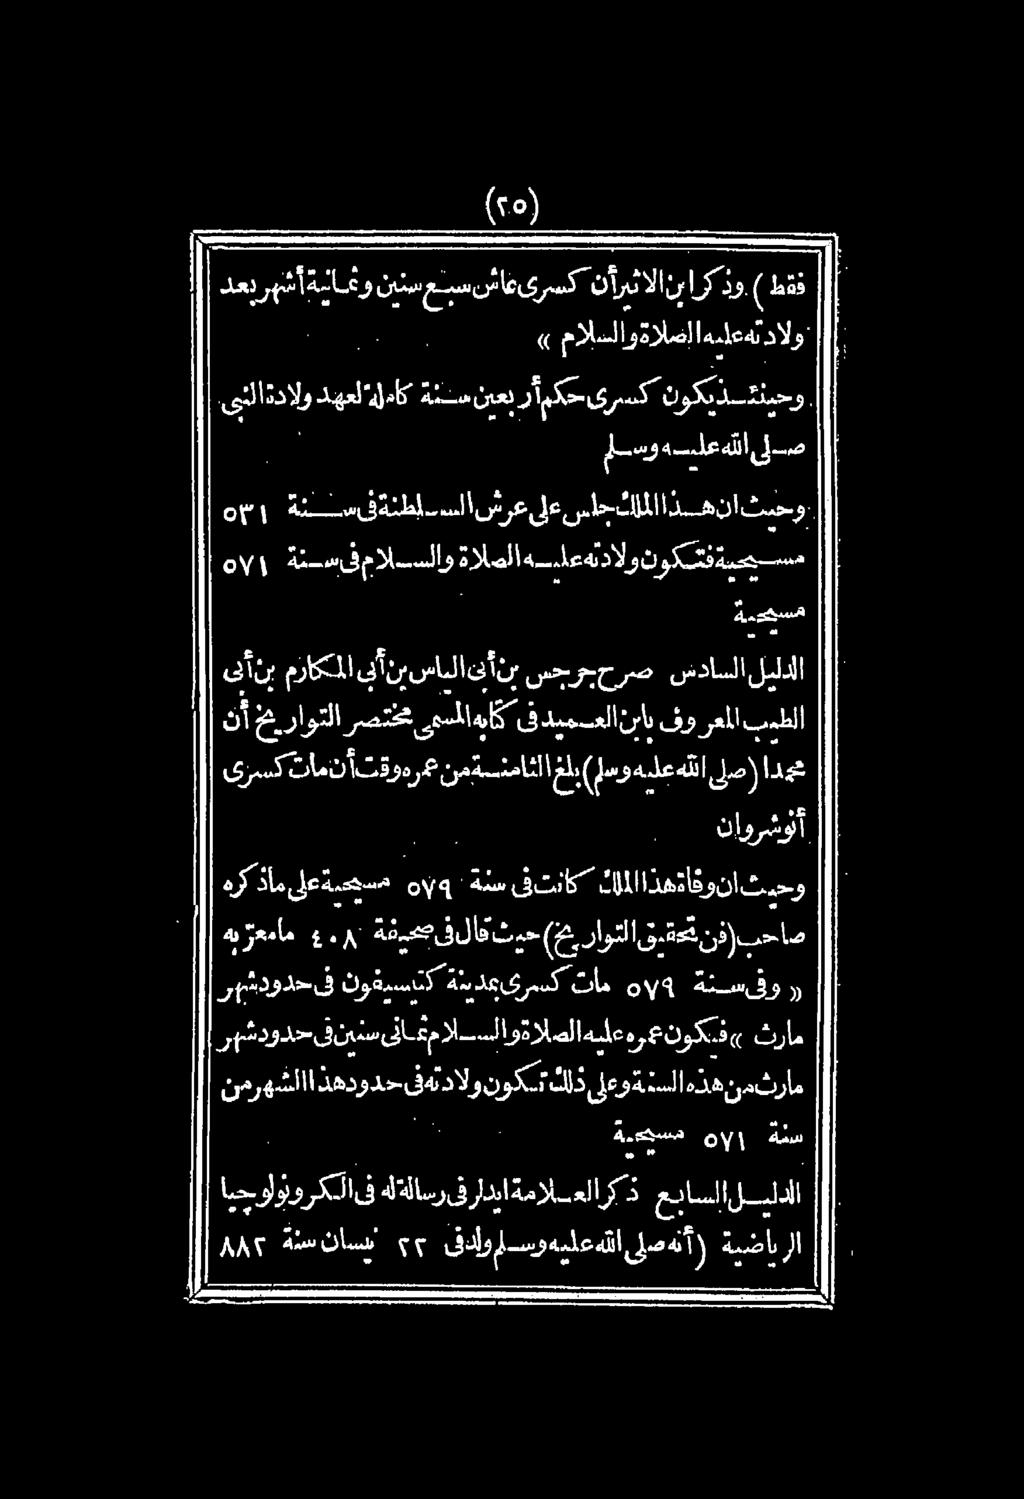 (٢٥)
فقط ) . وذكر ابن الاثير أن كسرى عاش سبع سنين وثمانية أشهر بعد
ولادته عليه الصلاة والسلام »
وحينئذ يكون كسرى حكم أربعين سنة كاملة لعهد ولادة النبى
صلى الله عليه وسلم
وحيث ان هذا الملك جلس على عرش السلطنة فى سنة ٥٣١
مسيحية فتكون ولادته عليه الصلاة والسلام فى سنة ٥٧١
مسيحية
الدليل السادس صرح جرجس بن أبى الياس بن أبى المكارم بن أبى
الطيب المعروف بابن العميد فى كتابه المسمى مختصر التواريخ أن
محمدا (صلى الله عليه وسلم) بلغ الثامنة من عمره وقت أن مات كسرى
أنوشروان
وحيث ان وفاة هذا الملك كانت فى سنة ٥٧٩ مسيحية على ماذكره
صاحب (فن تحقيق التواريخ) حيث قال فى صحيفة ٤٠٨ ما معرّبه
« وفى سنة ٥٧٩ مات كسرى بمدينة كتيسيفون فى حدود شهر
مارث » فيكون عمره عليه الصلاة والسلام ثمانى سنين فى حدود شهر
مارث من هذه السنة وعلى ذلك تكون ولادته فى حدود هذا الشهر من
سنة ٥٧١ مسيحية
الدليل السابع ذكر العلامة ايدلر فى رسالة له فى الكرونولوجيا
الرياضية (أنه صلى الله عليه وسلم ولد فى ٢٢ نيسان سنة ٨٨٢